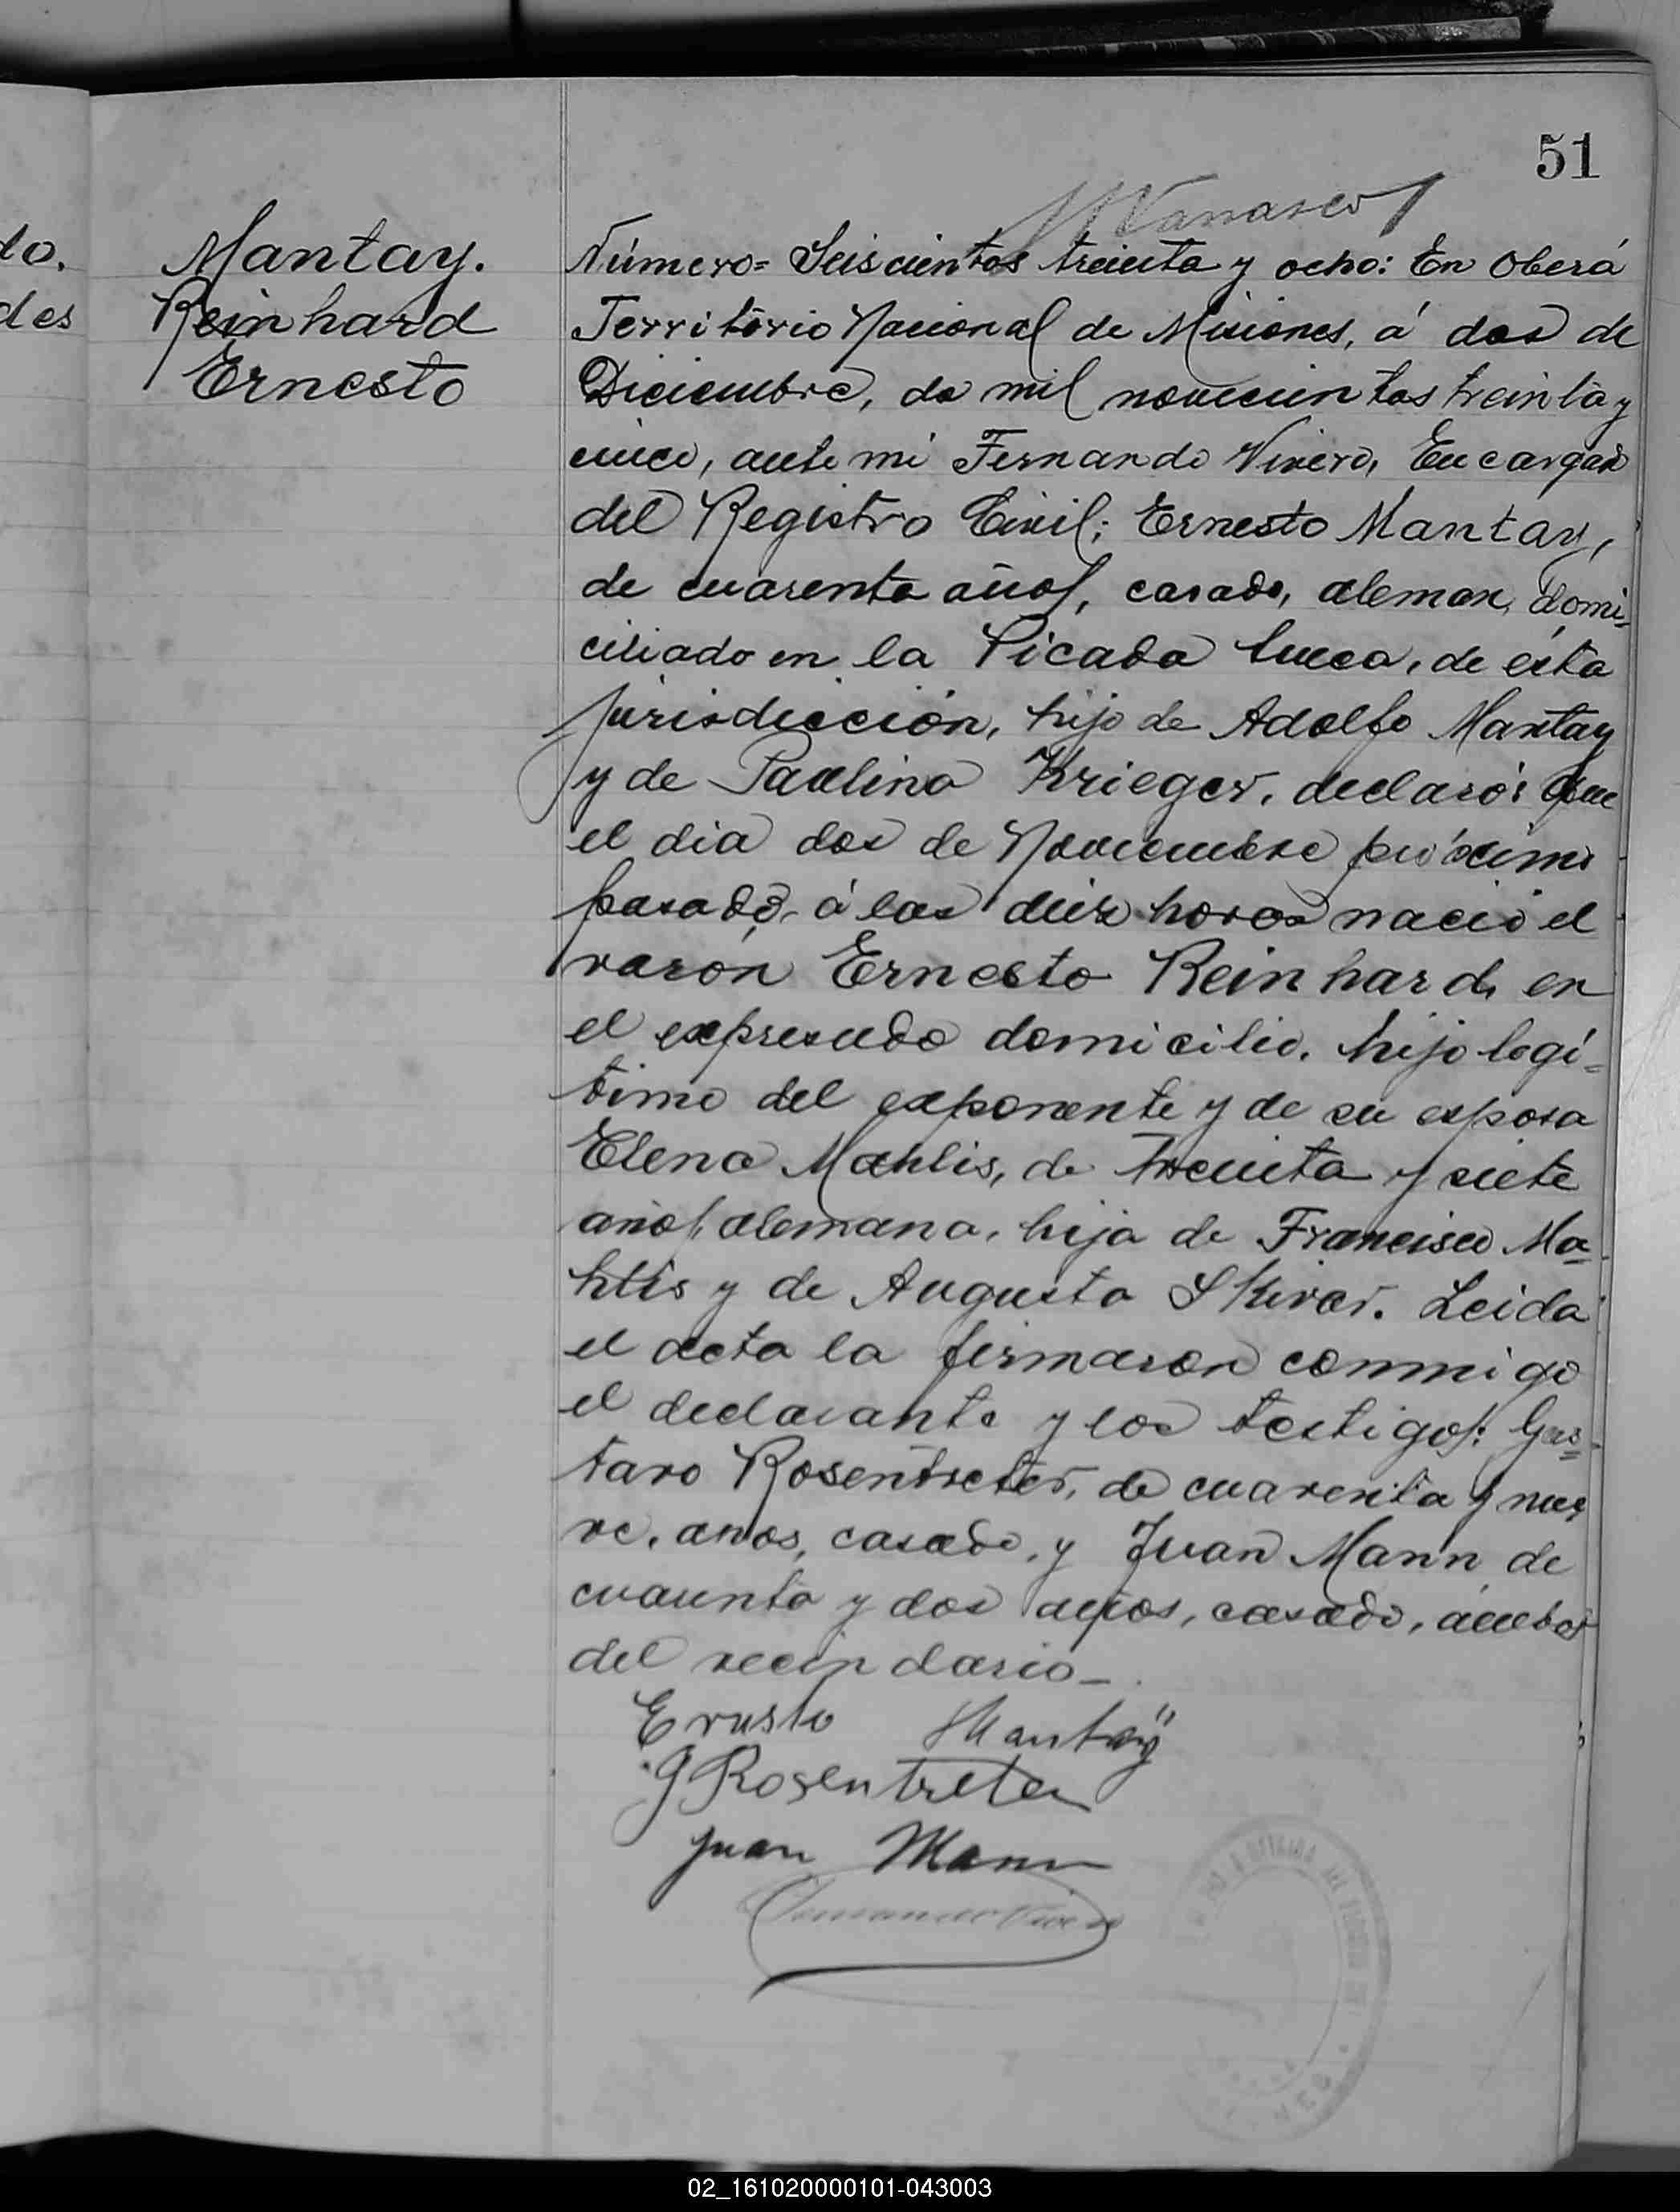 51
do.
des
Mantay.
Reinhard
Ernesto
Número= Seiscientos treinta y ocho: En Oberá
Territorio Nacional de Misiones, á dos de
Diciembre, de mil novecientos treinta y
cinco, ante mi Fernando Vivero, Encargado
del Registro Civil; Ernesto Mantay,
de cuarenta años, casado, aleman, domi-
ciliado en la Picada Sueca, de ésta
jurisdicción, hijo de Adolfo Mantay
y de Paulina Krieger, declaró: Que
el dia dos de Noviembre próximo
pasado, á las diez horas nació el
varón Ernesto Reinhard, en
el expresado domicilio, hijo legí-
timo del exponente y de su esposa
Elena Mahlis, de treinta y siete
años, alemana, hija de Francisco Ma-
hlis y de Augusta. Leida
el acta la firmaron conmigo
el declarante y los testigos: Gus-
tavo Rosentreter, de cuarenta y nue
ve, años, casado, y Juan Mann de
cuarenta y dos años, casado, ámbos
del vecindario_
Ernesto Mantaÿ
G Rosentreter
Juan Mann
Fernando Vivero
02_161020000101-043003